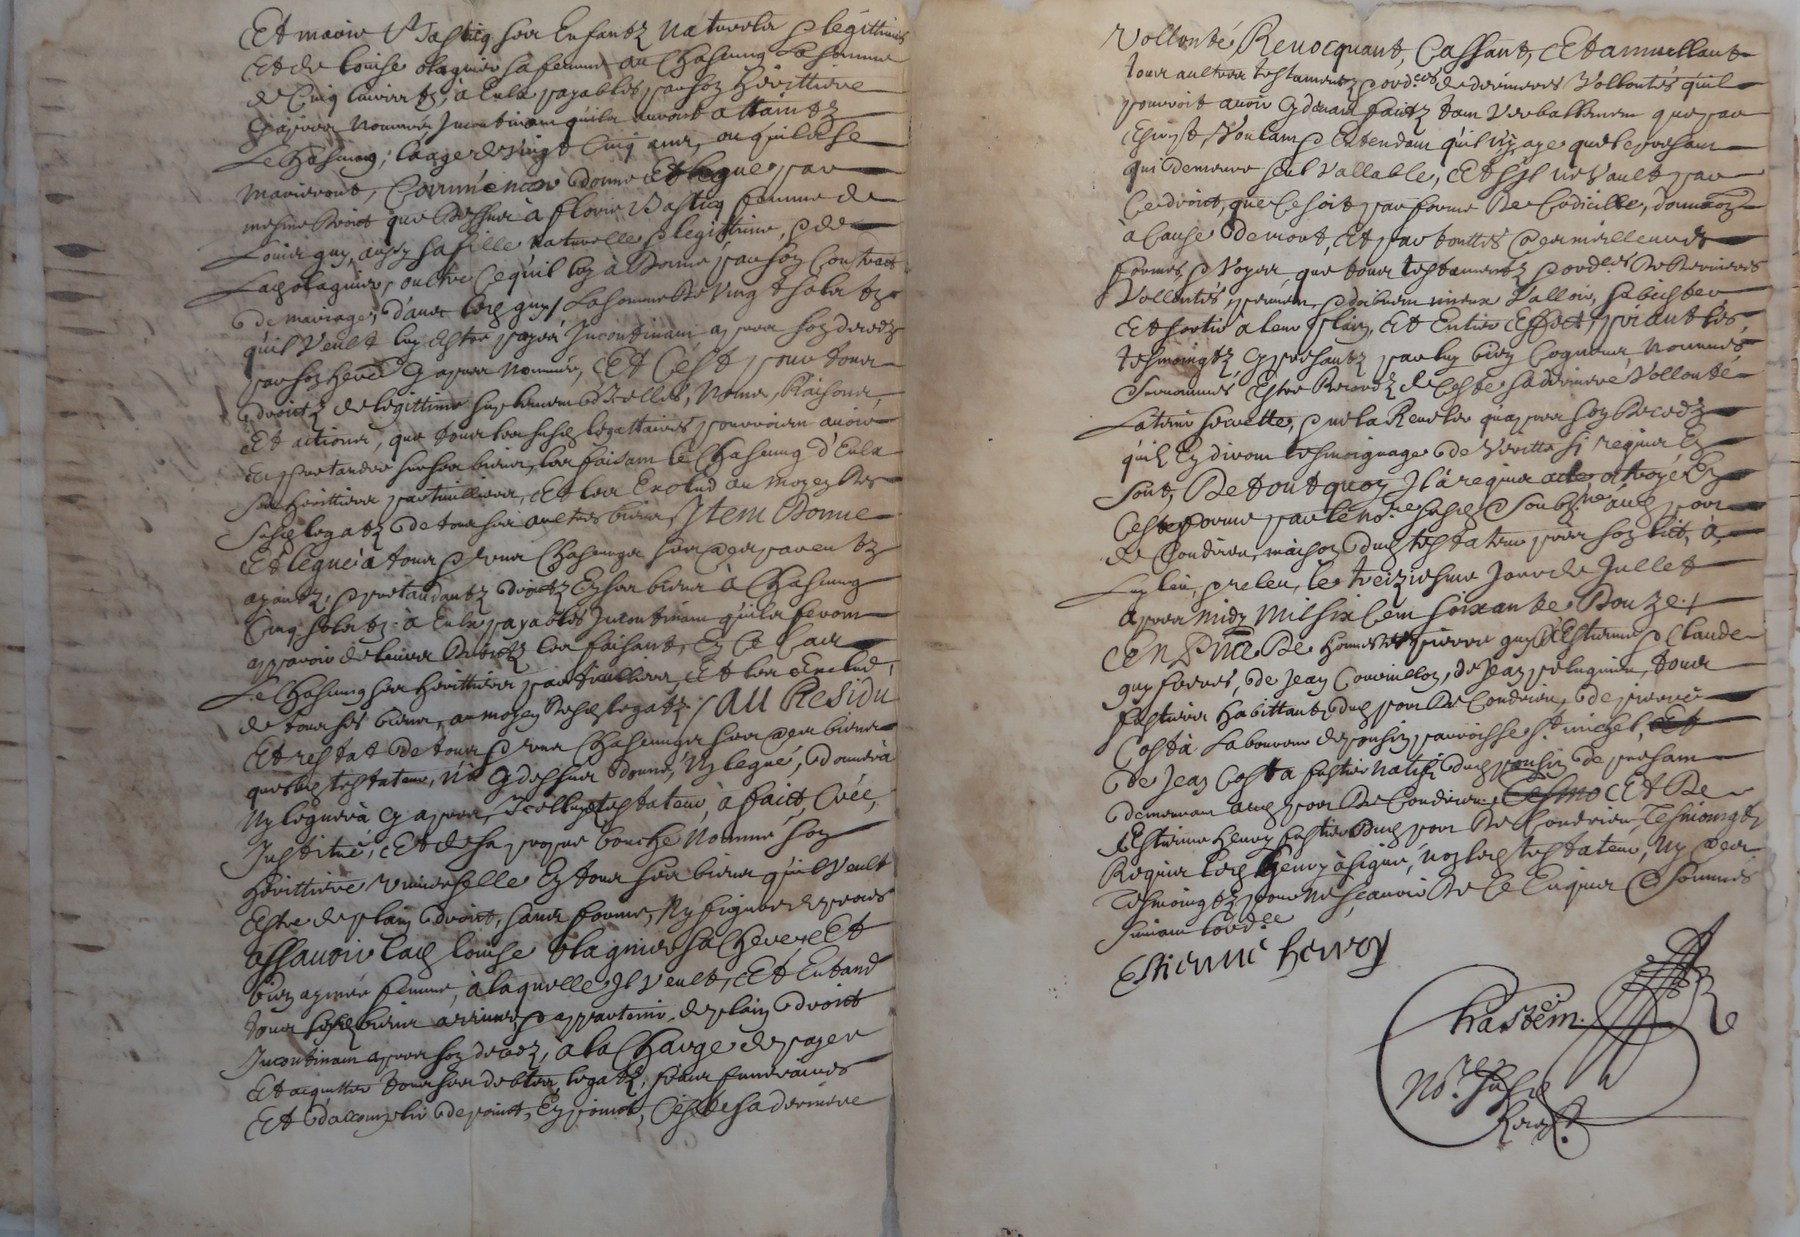 Et marie Vastieq ses enfantz naturelz & légittimes
Et de louise olagnier sa femme au Chascung La somme
de Cinq livres tz, à Eulx payables par son Hérittiere
Cy apres nommée Incontinant quilz auront attaintz
Le Chascung, laage de vingt Cinq ans, ou quilz se
marieront, donne Et legue par
mesme droict que dessus à florie Vastieq femme de
Louis guy, aussy sa fille naturelle & légittime, & de
Lad olagnier, oultre Ce quil luy à donné par son Contract
de mariage, d'avec led guy / La somme de Vingt solz tz
quil Veult luy Estre payés Incontinant apres son decedz
par son here Cy apres nommée, Et C'est pour tous
droictz de légittime supplement dIcelle, Noms, Raisons,
Et actions, que tous les susd legattaires pourroient avoir
Et prétandre sur ses biens, les faisant le Chascung d'Eulx
ses hérittiers particulliers, Et les Exclud au moyen des
susd legatz de tous ses aultres biens, Item Donne
Et legue à tous & uns Chascungs ses aers parentz
ayantz, & prétandantz droictz En ses biens à Chascung
Cinq solz tz à Eulx payables Incontinant quilz feront
apparoir de leurs droictz les faisant, En Ce Cas
Le Chascung ses hérittiers particulliers, Et les Exclud
de tous ses biens, au moyen desd legatz / AU Residu
Et restat de tous & uns Chascungs ses aers biens
que led testateur, n'a Cy dessus donné, Ny legué, donnera
Ny leguera Cy apres, Icelluy testateur, à faict, Créé,
Institué, Et de sa propre bouche Nommé son
Hérittiere Universelle En tous ses biens quil Veult
Estre de plain droict, sans forme, Ny figure de proces
assavoir Lad louise olagnier sa Chere Et
bien aymée femme, à laquelle Il Veult, Et Entand
tous sesd biens advenir, & appartenir de plain droict
Incontinant apres son decedz, à la Charge de payer
Et acquitter tous ses debtes, legatz, fraiz funéraires
Et d'accomplir de poinct, En poinct, Ceste sa derniere
Vollonté, Revocquant, Cassant, Et annullant
tous aultres testamentz & ord.ces de dernieres Vollontés quil
pourroit avoir Cy devant faictz tant Verballement que par
Escript, Voulant & Entendant quil n'y aye que le presant
qui demeure seul Vallable, Et s'il ne Vault par
Ce droict, que Ce soit par forme de Codicille, donnaon
à Cause de mort, Et par touttes aers meilleures
formes, & Voyes, que tous testamentz & ord.ces de dernieres
Vollontés, peuvent & doibvent mieux Valloir, subsister
Et sortir a leur plain, Et Entier Effect, priant les
tesmoingtz Cy presantz, par luy bien Cogneus, Nommés
& surnommés Estre Records de Ceste sa derniere Vollonté
La tenir secrette, & ne la Reveler quapres son decedz
quilz En diront tesmoignage de Veritté si requis En
sont, De tout quoy Il à requis acte octroyé En
Ceste forme par le no.re susd soubz.né aud port
de Condrieu, maison dud testateur pres son lict, à
luy leu, & releu, le treiziesme Jour de Jullet
apres midy Mil six Cent soixante Douze /
EN Pñce De Honnestes pierre guy & Estienne & Claude
guy freres, de Jean Convinllon, de Jean Pelugnieu, tous
fustiers habittantz dud port De Condrieu, de pierre
Costa Laboureur de pousin parroisse s.t michel,
de Jean Costa fustier natifz dud pousin de presant
demeurant aud port De Condrieu, Et De
Estienne Henry fustier dud port De Condrieu, Tesmoingtz
Requis led henry à signé, non led testateur, Ny aers
Tesmoingtz pour ne sçavoir De Ce Enquis & sommés
suivant l'ord.ce
Estienne henry
Chastem.
No.re Susd
Recept.